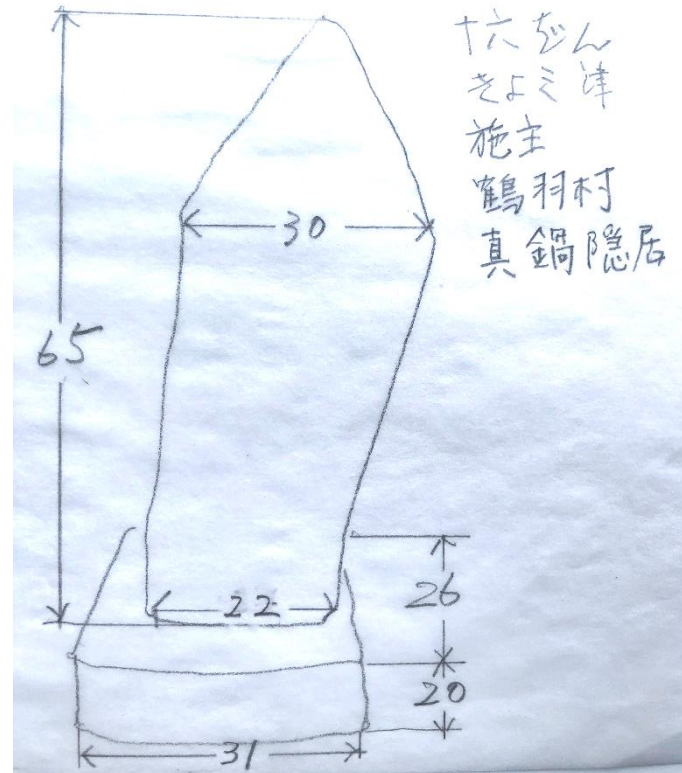 十六ばん
きよミ津
施主
鶴羽村
真鍋隠居
30
65
22
26
20
31